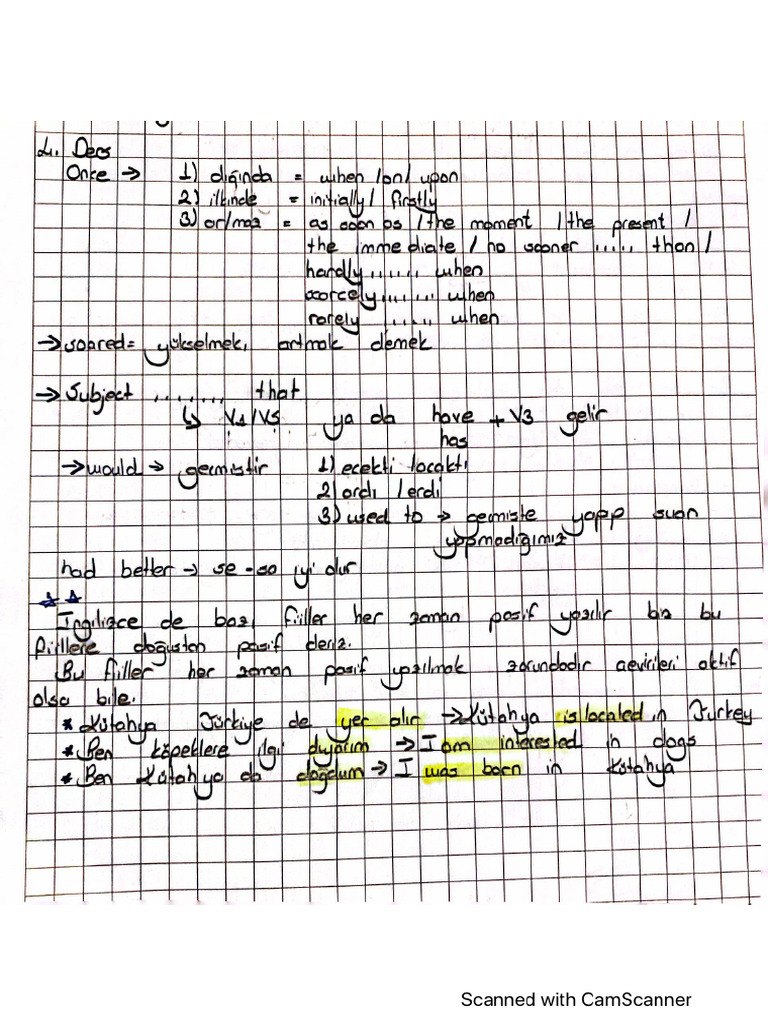 4. Ders
Once → 1) dığında = when / on / upon
2) ilkinde = initially / firstly
3) ar/maz = as soon as / the moment / the present /
the immediate / no sooner ..... than /
hardly ...... when
scarcely ....... when
rarely ..... when
→ soared = yükselmek, artmak demek
→ Subject ........ that
↳ V1/V5 ya da have + V3 gelir
has
→ would → geçmiştir 1) ecekti / acaktı
2) ardı / erdi
3) used to → geçmişte yapıp şuan
yapmadığımız
had better → se - sa iyi olur
☆☆
İngilizce de bazı fiiller her zaman pasif yazılır biz bu
fiillere doğuştan pasif deriz.
Bu fiiller her zaman pasif yazılmak zorundadır çevirileri aktif
olsa bile.
* Kütahya Türkiye de yer alır → Kütahya is located in Turkey
* Ben köpeklere ilgi duyarım → I am interested in dogs
* Ben Kütahya da doğdum → I was born in Kütahya
Scanned with CamScanner